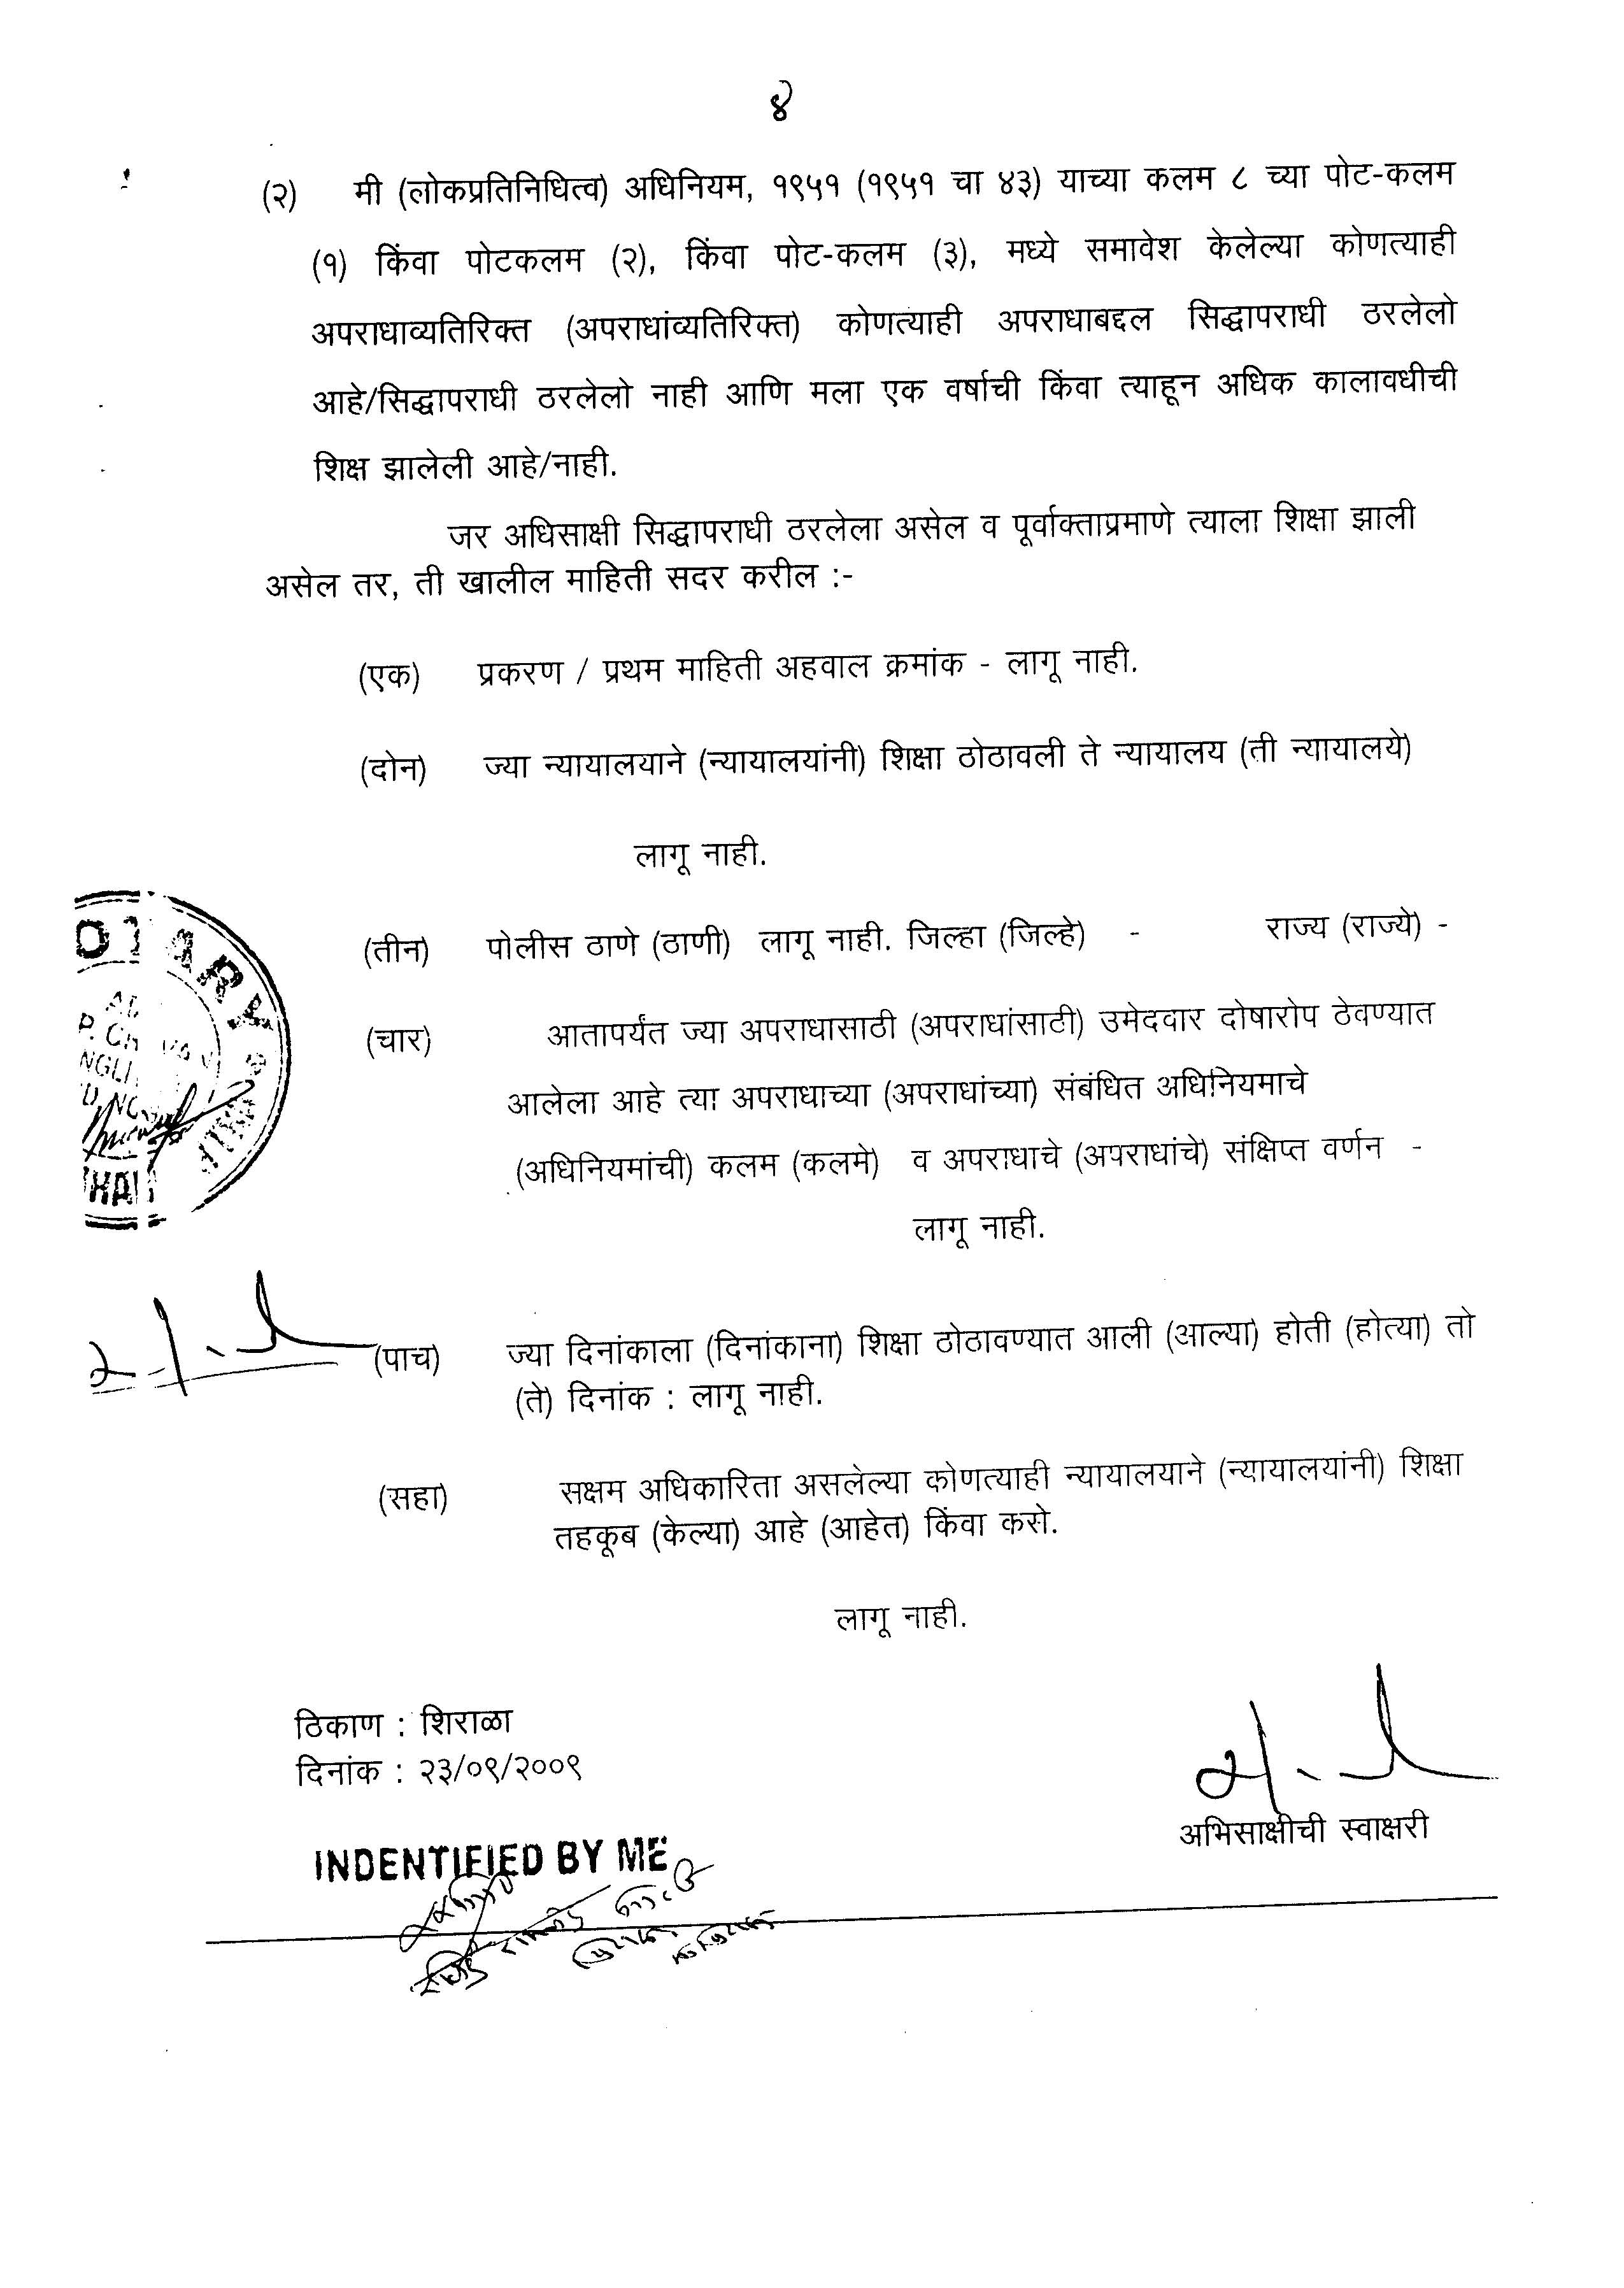 ४
(२) मी (लोकप्रतिनिधित्व) अधिनियम, १९५१ (१९५१ चा ४३) याच्या कलम ८ च्या पोट-कलम
(१) किंवा पोटकलम (२), किंवा पोट-कलम (३), मध्ये समावेश केलेल्या कोणत्याही
अपराधाव्यतिरिक्त (अपराधांव्यतिरिक्त) कोणत्याही अपराधाबद्दल सिद्धापराधी ठरलेलो
आहे/सिद्धापराधी ठरलेलो नाही आणि मला एक वर्षाची किंवा त्याहून अधिक कालावधीची
शिक्ष झालेली आहे/नाही.
जर अधिसाक्षी सिद्धापराधी ठरलेला असेल व पूर्वाक्ताप्रमाणे त्याला शिक्षा झाली
असेल तर, ती खालील माहिती सदर करील :-
(एक) प्रकरण / प्रथम माहिती अहवाल क्रमांक - लागू नाही.
(दोन) ज्या न्यायालयाने (न्यायालयांनी) शिक्षा ठोठावली ते न्यायालय (ती न्यायालये)
लागू नाही.
(तीन) पोलीस ठाणे (ठाणी) लागू नाही. जिल्हा (जिल्हे) - राज्य (राज्ये) -
(चार) आतापर्यंत ज्या अपराधासाठी (अपराधांसाटी) उमेदवार दोषारोप ठेवण्यात
आलेला आहे त्या अपराधाच्या (अपराधांच्या) संबंधित अधिनियमाचे
(अधिनियमांची) कलम (कलमे) व अपराधाचे (अपराधांचे) संक्षिप्त वर्णन -
लागू नाही.
(पाच) ज्या दिनांकाला (दिनांकाना) शिक्षा ठोठावण्यात आली (आल्या) होती (होत्या) तो
(ते) दिनांक : लागू नाही.
(सहा) सक्षम अधिकारिता असलेल्या कोणत्याही न्यायालयाने (न्यायालयांनी) शिक्षा
तहकूब (केल्या) आहे (आहेत) किंवा कसे.
लागू नाही.
ठिकाण : शिराळा
दिनांक : २३/०९/२००९
अभिसाक्षीची स्वाक्षरी
INDENTIFIED BY ME